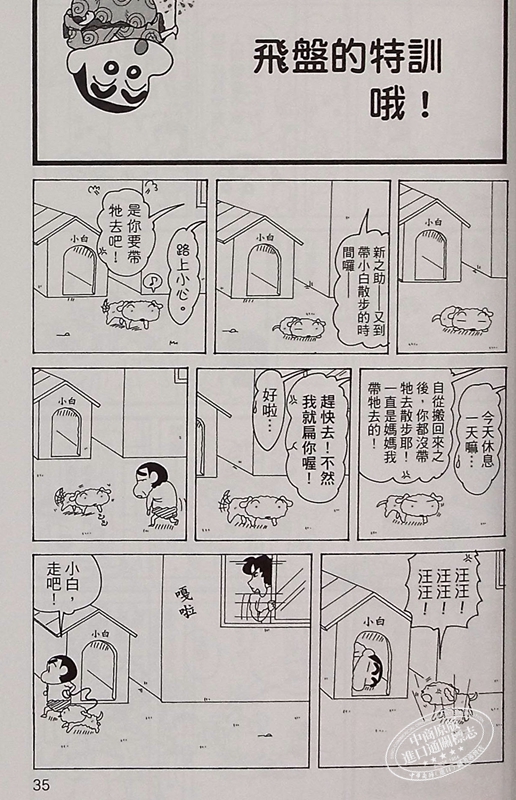 飛盤的特訓
哦！
小白
小白
新之助——又到
帶小白散步的時
間囉——
小白
路上小心。
是你要帶
牠去吧！
今天休息
一天嘛…
自從搬回來之
後，你都沒帶
牠去散步耶！
一直是媽媽我
帶牠去的！
趕快去！不然
我就扁你喔！
好啦…
小白
汪汪！
汪汪！
汪汪！
小白
嘎啦
小白，
走吧！
小白
35
中商原版
進口通關標志